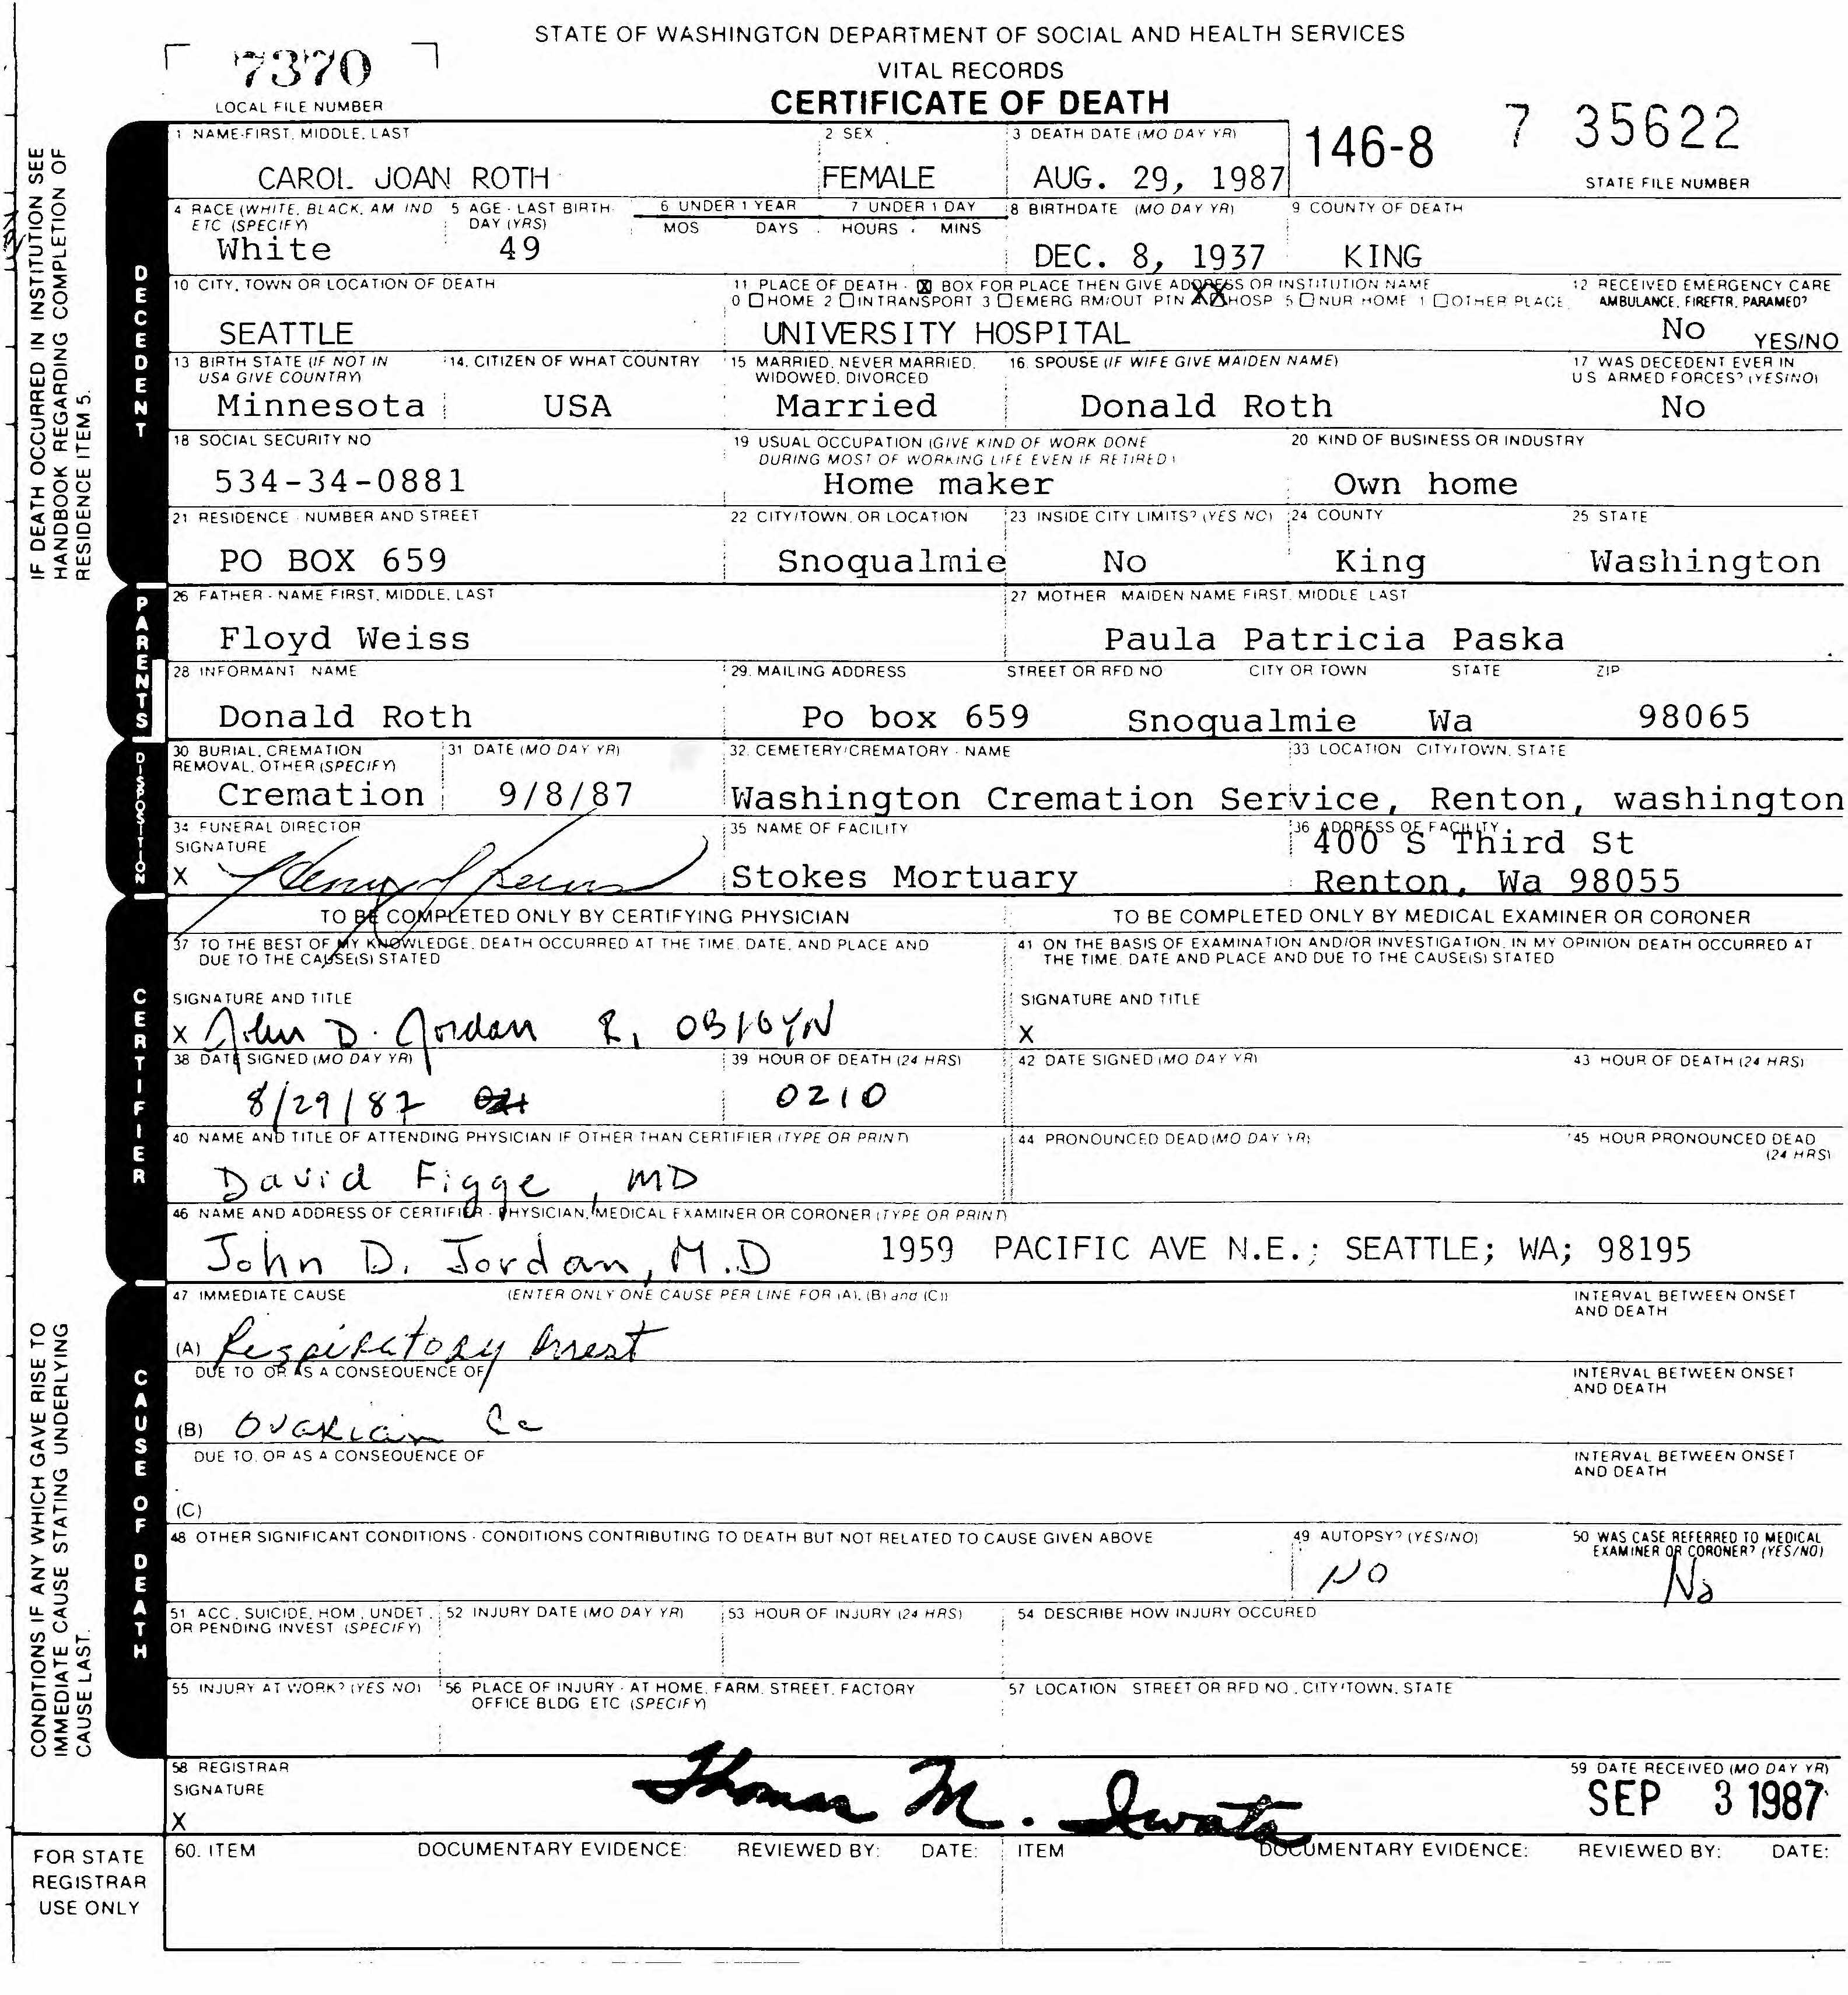 STATE OF WASHINGTON DEPARTMENT OF SOCIAL AND HEALTH SERVICES
7370
VITAL RECORDS
LOCAL FILE NUMBER
CERTIFICATE OF DEATH
146-8
7 35622
STATE FILE NUMBER
IF DEATH OCCURRED IN INSTITUTION SEE
HANDBOOK REGARDING COMPLETION OF
RESIDENCE ITEM 5.
DECEDENT
1 NAME-FIRST, MIDDLE, LAST 2 SEX 3 DEATH DATE (MO DAY YR)
CAROL JOAN ROTH FEMALE AUG. 29, 1987
4 RACE (WHITE, BLACK, AM IND 5 AGE - LAST BIRTH- 6 UNDER 1 YEAR 7 UNDER 1 DAY 8 BIRTHDATE (MO DAY YR) 9 COUNTY OF DEATH
ETC (SPECIFY) DAY (YRS) MOS DAYS HOURS MINS
White 49 DEC. 8, 1937 KING
10 CITY, TOWN OR LOCATION OF DEATH 11 PLACE OF DEATH - X BOX FOR PLACE THEN GIVE ADDRESS OR INSTITUTION NAME 12 RECEIVED EMERGENCY CARE
0 HOME 2 IN TRANSPORT 3 EMERG RM/OUT PTN XX HOSP 5 NUR HOME 1 OTHER PLACE AMBULANCE, FIREFTR, PARAMED?
SEATTLE UNIVERSITY HOSPITAL No YES/NO
13 BIRTH STATE (IF NOT IN 14. CITIZEN OF WHAT COUNTRY 15 MARRIED, NEVER MARRIED, 16. SPOUSE (IF WIFE GIVE MAIDEN NAME) 17 WAS DECEDENT EVER IN
USA GIVE COUNTRY) WIDOWED, DIVORCED US ARMED FORCES? (YES/NO)
Minnesota USA Married Donald Roth No
18 SOCIAL SECURITY NO 19 USUAL OCCUPATION (GIVE KIND OF WORK DONE 20 KIND OF BUSINESS OR INDUSTRY
DURING MOST OF WORKING LIFE EVEN IF RETIRED)
534-34-0881 Home maker Own home
21 RESIDENCE - NUMBER AND STREET 22 CITY/TOWN, OR LOCATION 23 INSIDE CITY LIMITS? (YES NO) 24 COUNTY 25 STATE
PO BOX 659 Snoqualmie No King Washington
PARENTS
26 FATHER - NAME FIRST, MIDDLE, LAST 27 MOTHER MAIDEN NAME FIRST, MIDDLE LAST
Floyd Weiss Paula Patricia Paska
28 INFORMANT NAME 29. MAILING ADDRESS STREET OR RFD NO CITY OR TOWN STATE ZIP
Donald Roth Po box 659 Snoqualmie Wa 98065
DISPOSITION
30 BURIAL, CREMATION 31 DATE (MO DAY YR) 32. CEMETERY/CREMATORY - NAME 33 LOCATION CITY/TOWN, STATE
REMOVAL, OTHER (SPECIFY)
Cremation 9/8/87 Washington Cremation Service, Renton, washington
34 FUNERAL DIRECTOR 35 NAME OF FACILITY 36 ADDRESS OF FACILITY
SIGNATURE 400 S Third St
X Stokes Mortuary Renton, Wa 98055
CERTIFIER
TO BE COMPLETED ONLY BY CERTIFYING PHYSICIAN TO BE COMPLETED ONLY BY MEDICAL EXAMINER OR CORONER
37 TO THE BEST OF MY KNOWLEDGE, DEATH OCCURRED AT THE TIME, DATE, AND PLACE AND 41 ON THE BASIS OF EXAMINATION AND/OR INVESTIGATION, IN MY OPINION DEATH OCCURRED AT
DUE TO THE CAUSE(S) STATED THE TIME, DATE AND PLACE AND DUE TO THE CAUSE(S) STATED
SIGNATURE AND TITLE SIGNATURE AND TITLE
X John D. Jordan R, OB/GYN X
38 DATE SIGNED (MO DAY YR) 39 HOUR OF DEATH (24 HRS) 42 DATE SIGNED (MO DAY YR) 43 HOUR OF DEATH (24 HRS)
8/29/87 0210
40 NAME AND TITLE OF ATTENDING PHYSICIAN IF OTHER THAN CERTIFIER (TYPE OR PRINT) 44 PRONOUNCED DEAD (MO DAY YR) 45 HOUR PRONOUNCED DEAD
(24 HRS)
David Figge, MD
46 NAME AND ADDRESS OF CERTIFIER - PHYSICIAN, MEDICAL EXAMINER OR CORONER (TYPE OR PRINT)
John D. Jordan, M.D 1959 PACIFIC AVE N.E.; SEATTLE; WA; 98195
CONDITIONS IF ANY WHICH GAVE RISE TO
IMMEDIATE CAUSE STATING UNDERLYING
CAUSE LAST.
CAUSE OF DEATH
47 IMMEDIATE CAUSE (ENTER ONLY ONE CAUSE PER LINE FOR (A), (B) and (C)) INTERVAL BETWEEN ONSET
AND DEATH
(A) Respiratory Arrest
DUE TO OR AS A CONSEQUENCE OF INTERVAL BETWEEN ONSET
AND DEATH
(B) Ovarian Ca
DUE TO, OR AS A CONSEQUENCE OF INTERVAL BETWEEN ONSET
AND DEATH
(C)
48 OTHER SIGNIFICANT CONDITIONS - CONDITIONS CONTRIBUTING TO DEATH BUT NOT RELATED TO CAUSE GIVEN ABOVE 49 AUTOPSY? (YES/NO) 50 WAS CASE REFERRED TO MEDICAL
EXAMINER OR CORONER? (YES/NO)
NO No
51 ACC, SUICIDE, HOM, UNDET, 52 INJURY DATE (MO DAY YR) 53 HOUR OF INJURY (24 HRS) 54 DESCRIBE HOW INJURY OCCURED
OR PENDING INVEST (SPECIFY)
55 INJURY AT WORK? (YES NO) 56 PLACE OF INJURY - AT HOME, FARM, STREET, FACTORY 57 LOCATION STREET OR RFD NO, CITY/TOWN, STATE
OFFICE BLDG ETC (SPECIFY)
58 REGISTRAR 59 DATE RECEIVED (MO DAY YR)
SIGNATURE Thomas M. Iwata SEP 3 1987
X
FOR STATE
REGISTRAR
USE ONLY
60. ITEM DOCUMENTARY EVIDENCE: REVIEWED BY: DATE: ITEM DOCUMENTARY EVIDENCE: REVIEWED BY: DATE: